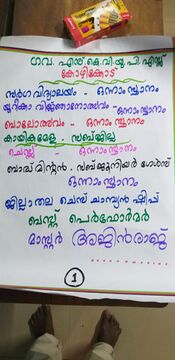 ഗവ. എൻ കെ.വി.യു പി എസ്സ്
കോഴിക്കോട്
സ്വർഗ വിദ്യാലയം - ഒന്നാം സ്ഥാനം
യുറീക്കാ വിജ്ഞാനോത്സവം - ഒന്നാം സ്ഥാനം
ബാലോത്സവം - ഒന്നാം സ്ഥാനം
കായികമേള. സബ്ജില്ല
ചെസ്സ് - ഒന്നാം സ്ഥാനം
ബാഡ്മിന്റൻ. സബ്ജൂനിയർ ഗേൾസ്
ഒന്നാം സ്ഥാനം
ജില്ലാതല ചെസ് ചാമ്പ്യൻ ഷിപ്പ്
ബസ്റ്റ് പെർഫോർമർ
മാസ്റ്റർ അജിൻരാജ്
1